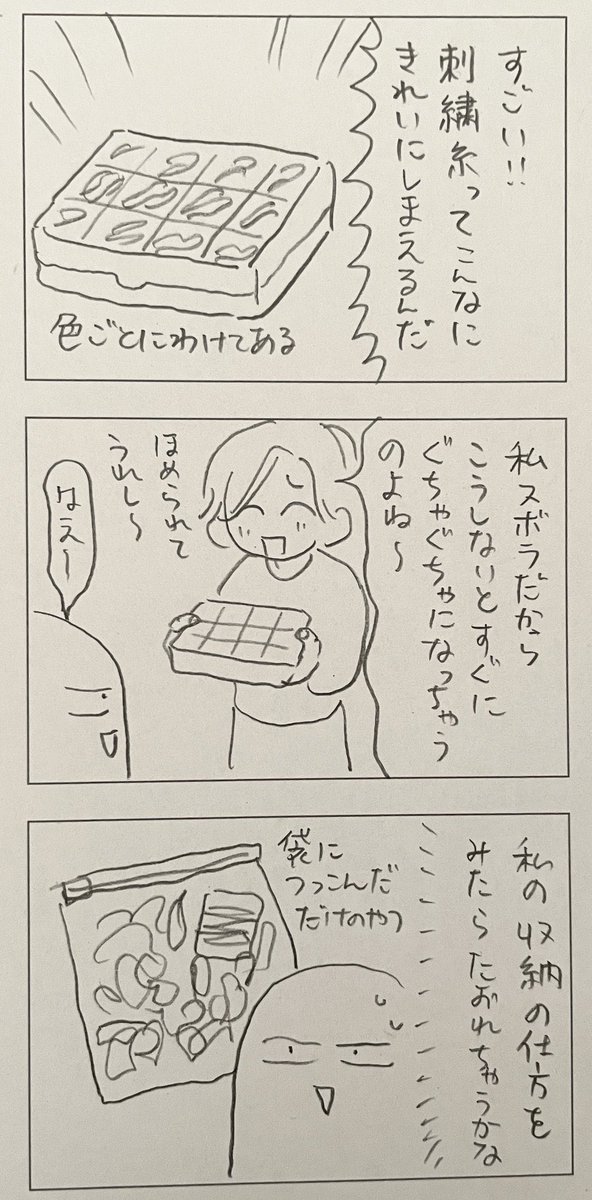 すごい!!
刺繍糸ってこんなに
きれいにしまえるんだ
色ごとにわけてある
私ズボラだから
こうしないとすぐに
ぐちゃぐちゃになっちゃう
のよね〜
ほめられて
うれし〜
はえー
私の収納の仕方を
みたらたおれちゃうかな
袋に
つっこんだ
だけのやつ